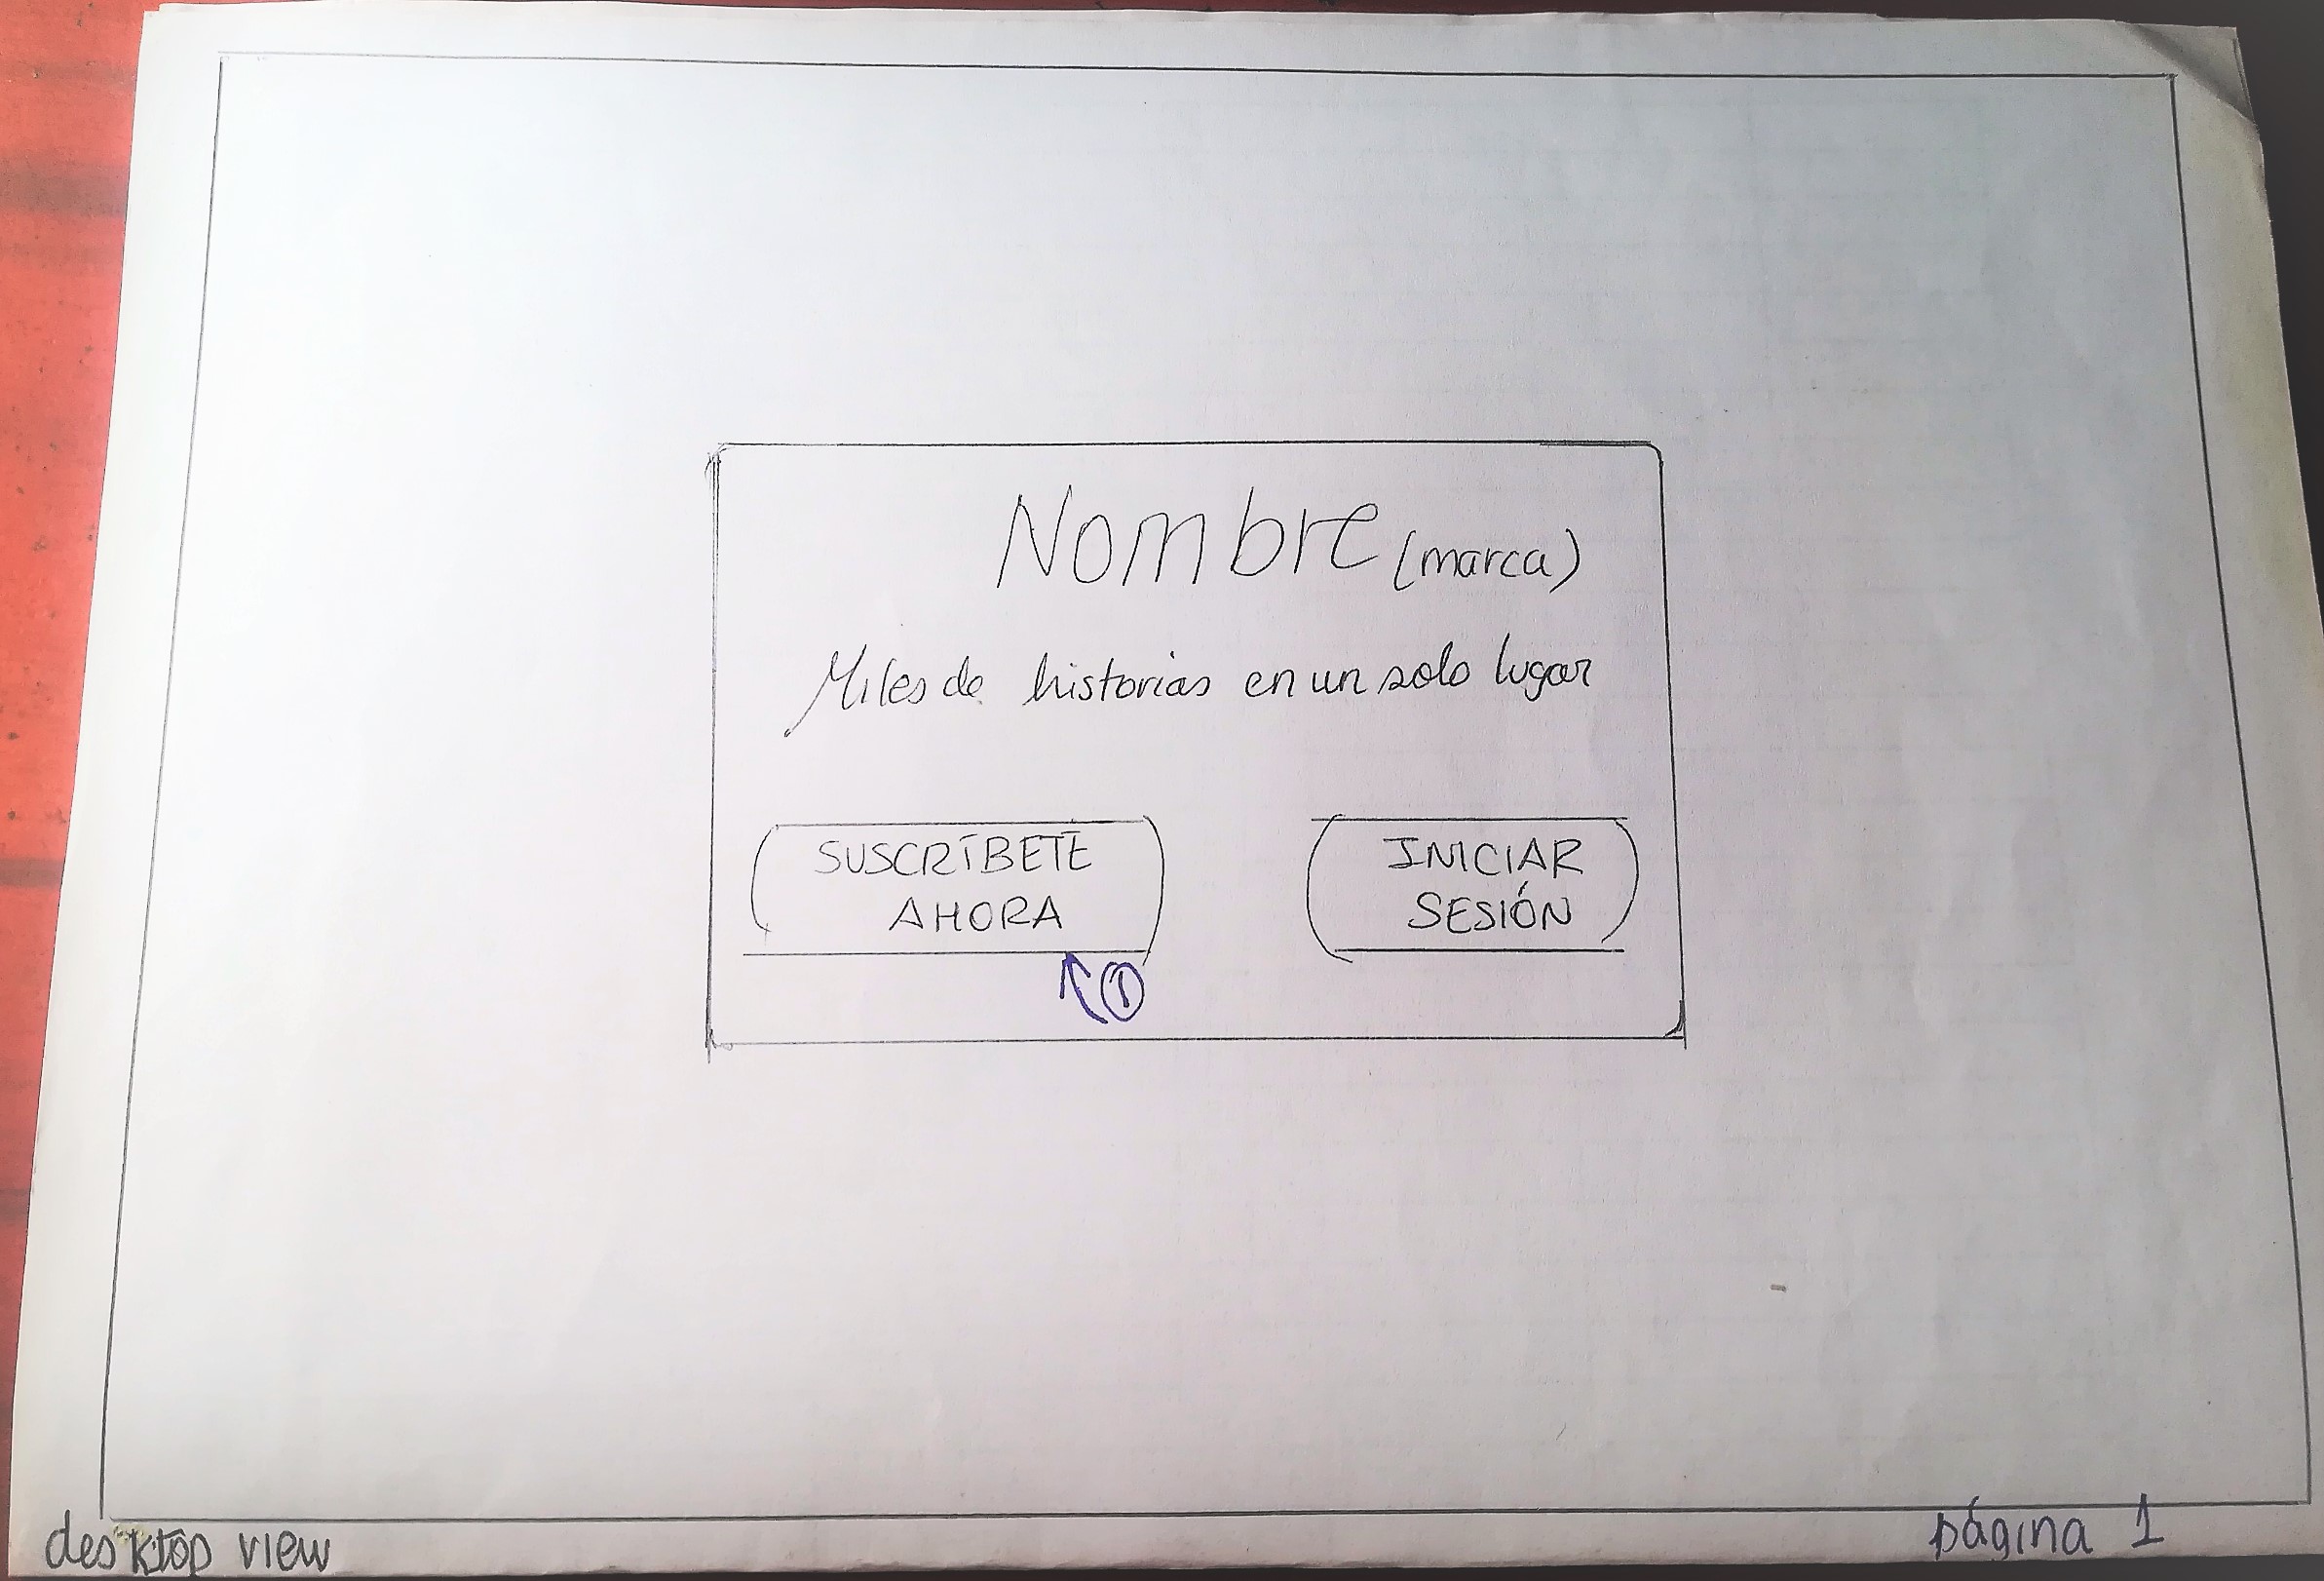 Nombre (marca)
Miles de historias en un solo lugar
SUSCRÍBETE
AHORA
INICIAR
SESIÓN
1
desktop view
página 1